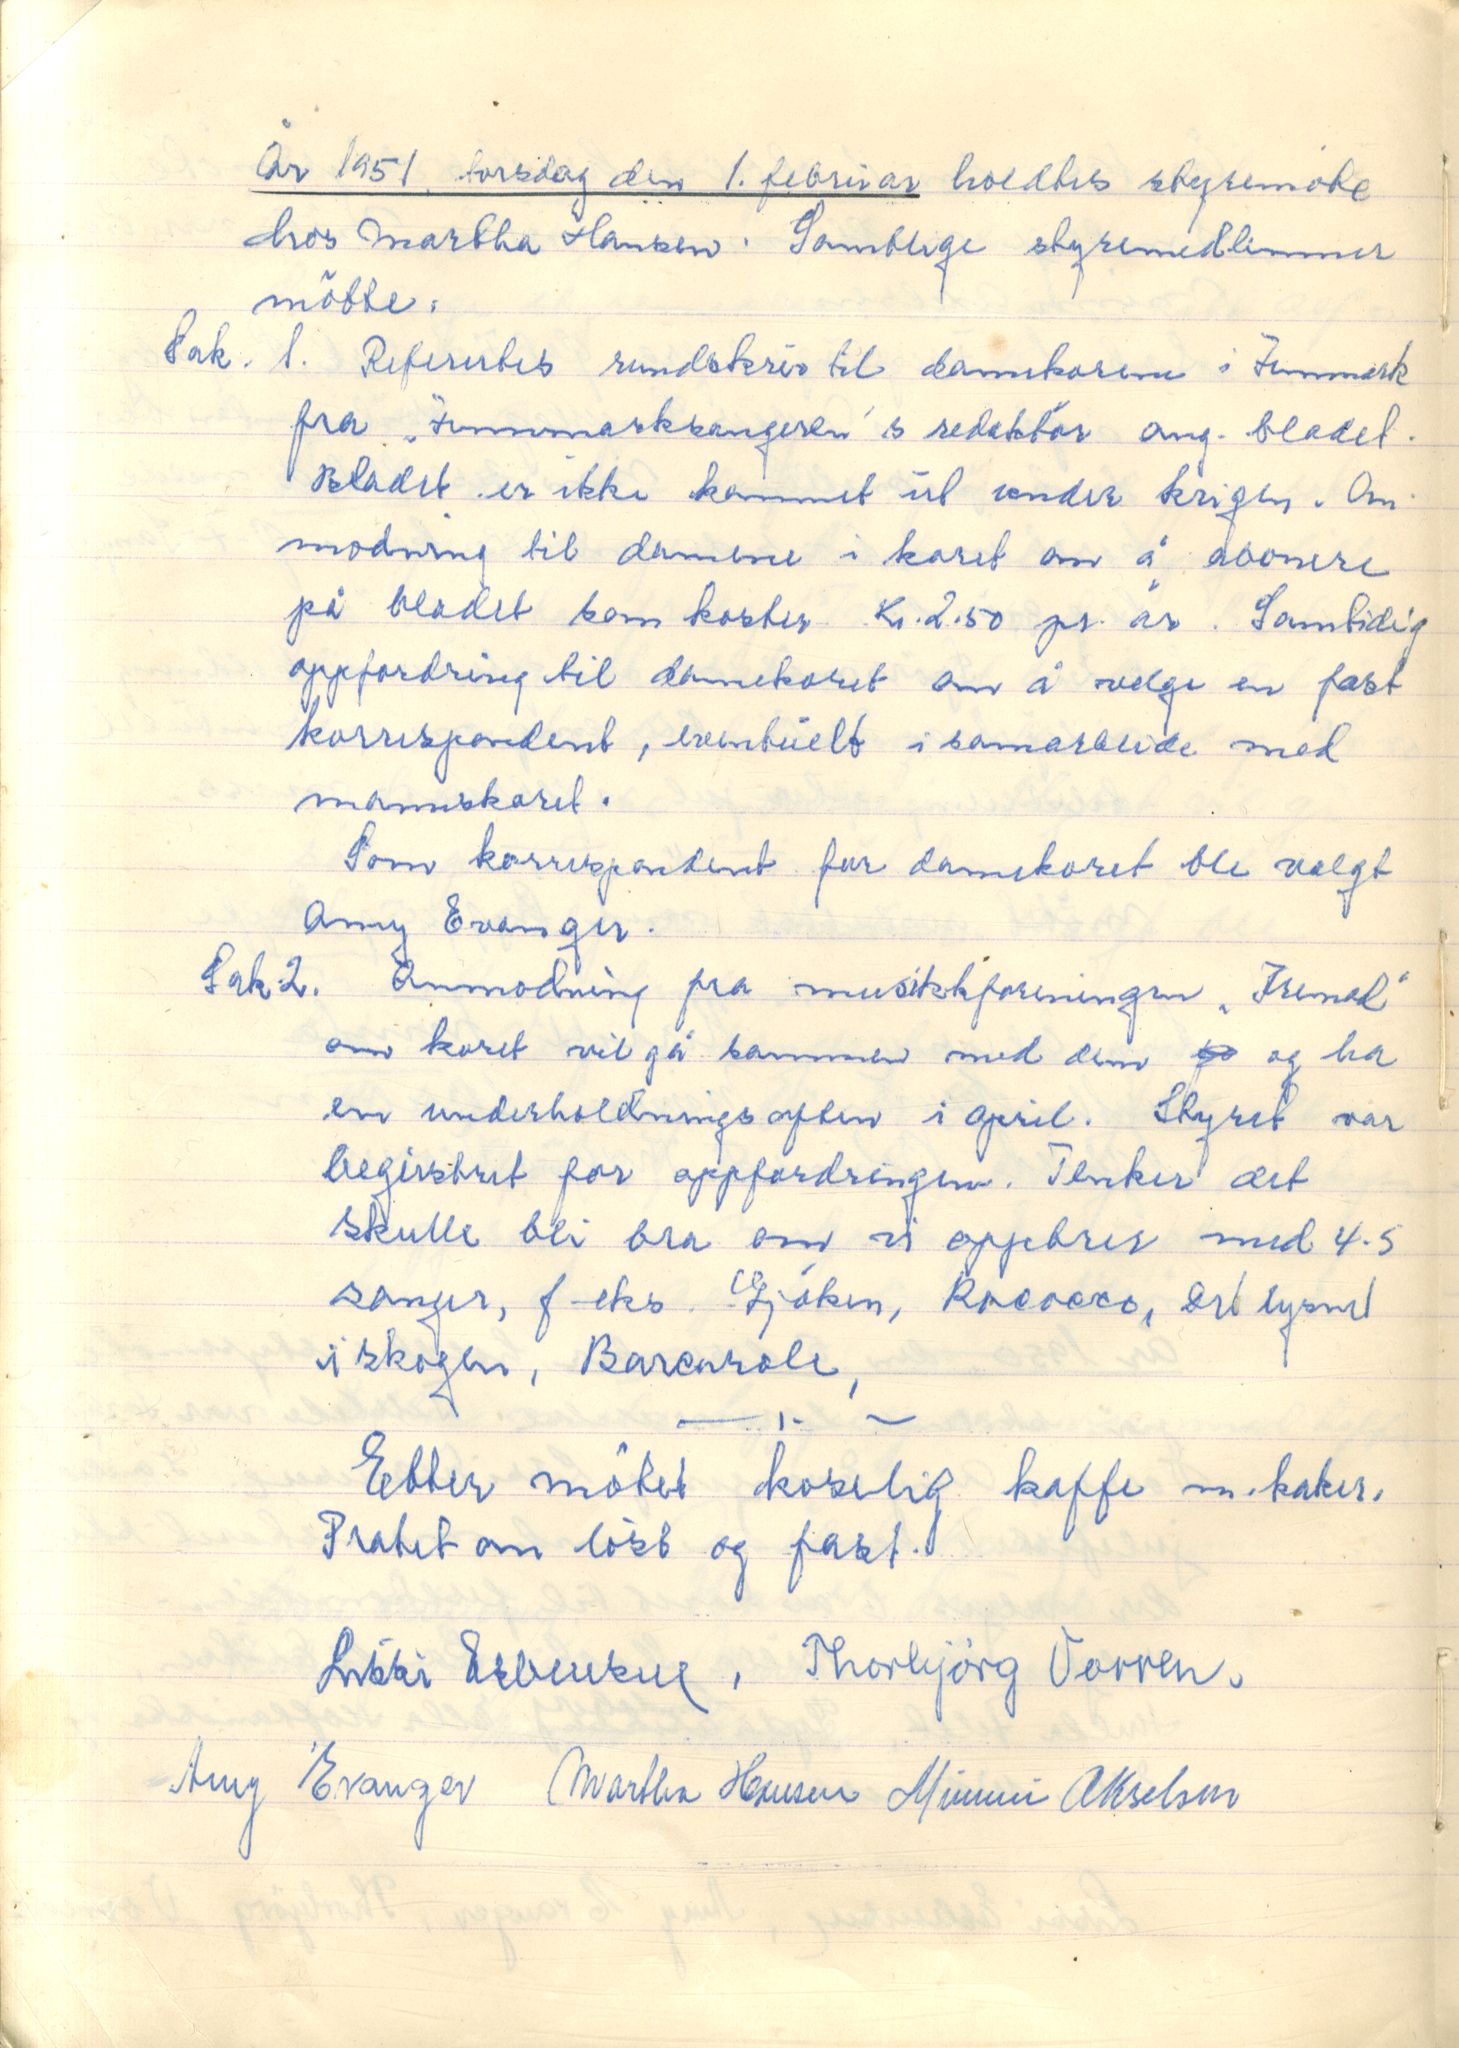 År 1951, torsdag den 1. februar holdtes styremöte
hos Martha Hansen. Samtlige styremedlemmer
mötte.
Sak. 1. Refertes rundskriv til damekorene i Finnmark
fra „Finnmarksangeren"s redaktör ang. bladet.
Bladet er ikke kommet ut under krigen. An-
modning til damene i koret om å abonere
på bladet som koster Kr. 2.50 pr. år. Samtidig
oppfordring til damekoret om å velge en fast
korrespondent, eventuelt i samarbeide med
mannskoret.
Som korrespondent for damekoret ble valgt
Amy Evanger.
Sak 2. Anmodning fra musikkforeningen „Fremad"
om koret vil gå sammen med dem og ha
en underholdningsaften i april. Styret var
begeistret for oppfordringen. Tenker det
skulle bli bra om vi opptrer med 4-5
sanger, f-eks. Gjöken, Rococco, Det lysnet
i skogen, Barcarole,
Etter mötet koselig kaffe m. kaker.
Pratet om löst og fast.
Esbensen, Thorbjörg Vorren.
Amy Evanger Martha Hansen Mimmi Akselsen